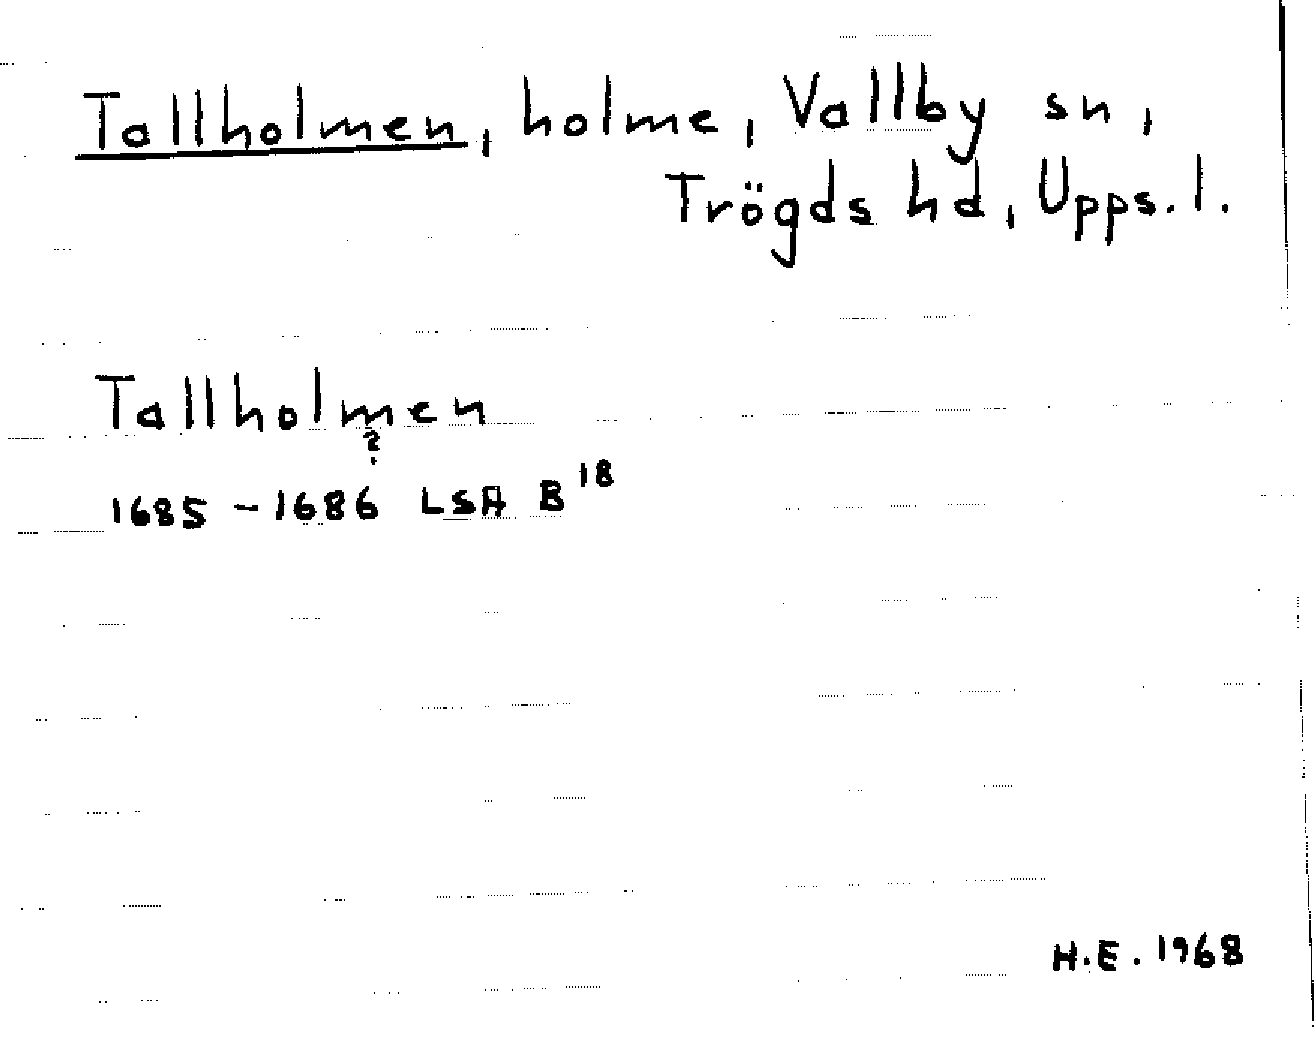 Tallholmen, holme, Vallby sn,
Trögds hd, Upps. l.
Tallholmen
?
1685-1686 LSA B18
H.E. 1968